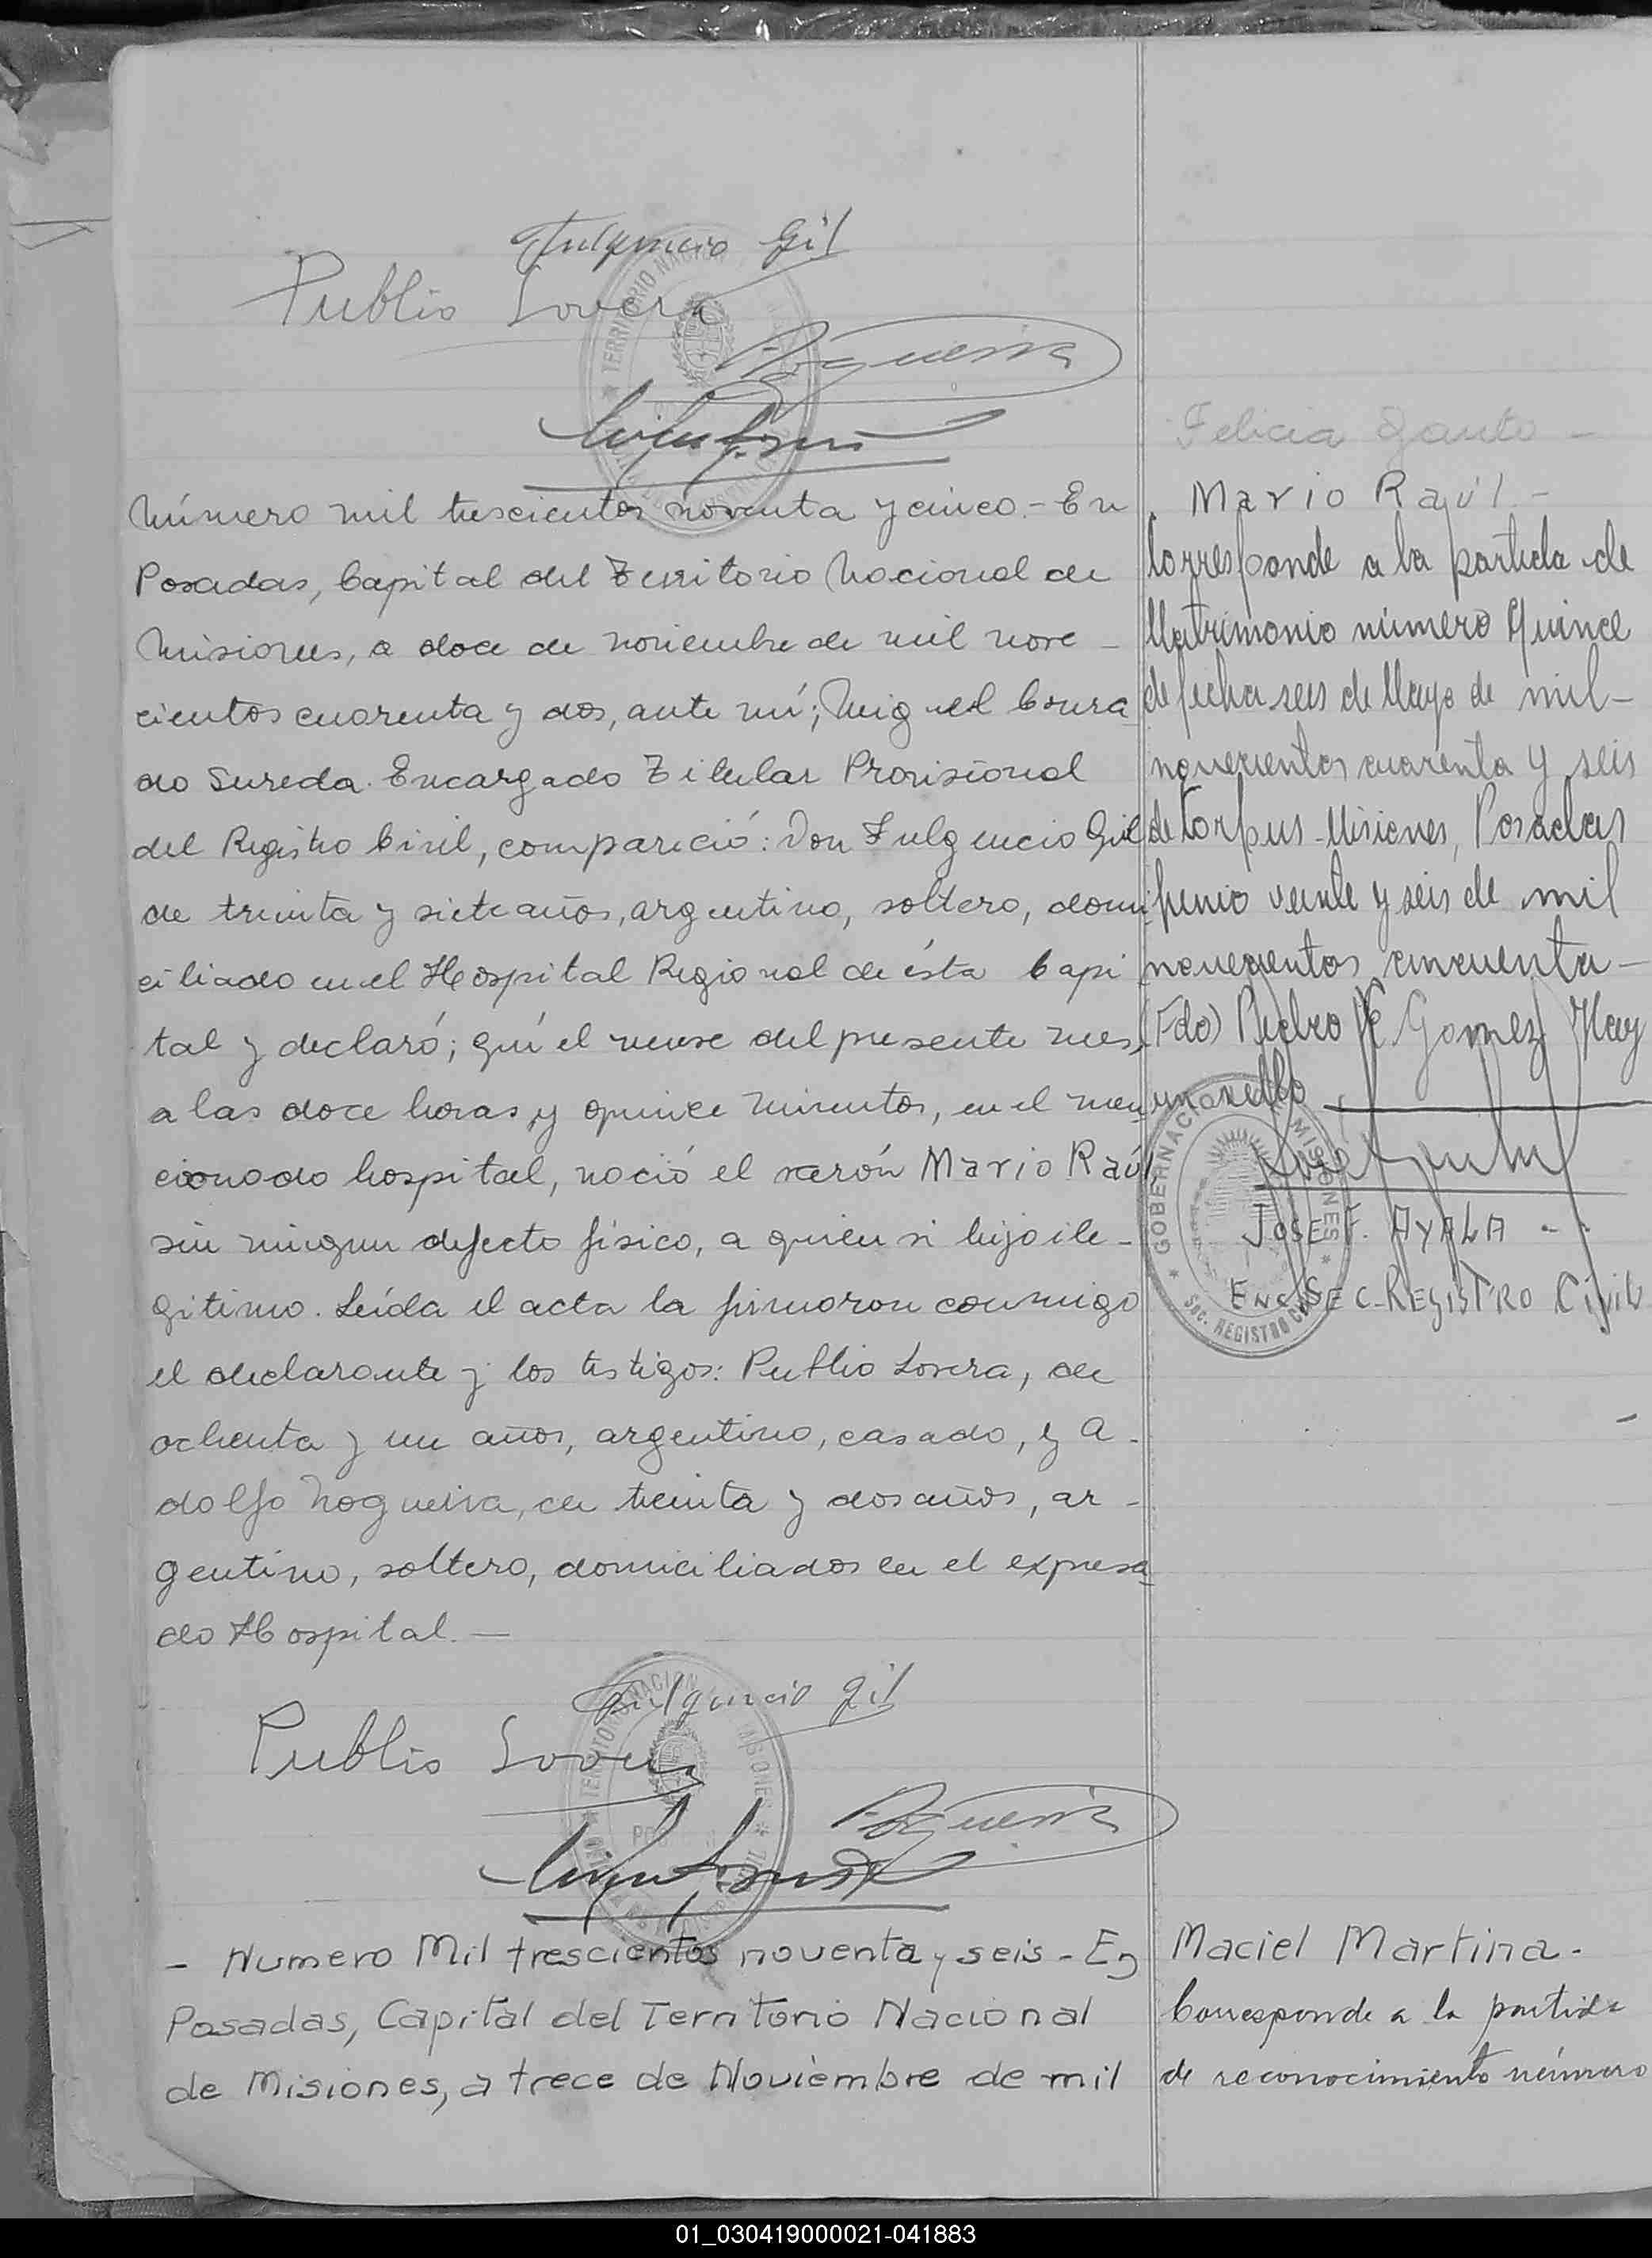 Fulgencio Gil
Publio Lovera
Nogueira
Número mil trescientos noventa y cinco.- En
Posadas, Capital del Territorio Nacional de
Misiones, a doce de noviembre de mil nove-
cientos cuarenta y dos, ante mí; Miguel Conra
do Sureda. Encargado Titular Provisional
del Registro Civil, compareció: Don Fulgencio Gil
de treinta y siete años, argentino, soltero, domi
ciliado en el Hospital Regional de ésta Capi
tal y declaró; qué el nueve del presente mes,
a las doce horas y quince minutos, en el men
cionado hospital, nació el varón Mario Raúl
sin ningun defecto físico, a quien si hijo ile-
gitimo. Leída el acta la firmaron conmigo
el declarante y los testigos: Publio Lovera, de
ochenta y un años, argentino, casado, y A-
dolfo Nogueira, de treinta y dos años, ar-
gentino, soltero, domiciliados en el expresa
do Hospital.-
Fulgencio Gil
Publio Lovera
Nogueira
- Numero Mil trescientos noventa y seis - En
Posadas, Capital del Territorio Nacional
de Misiones, a trece de Noviembre de mil
Felicia
Mario Raúl.-
Corresponde a la partida de
Matrimonio número Quince
de fecha seis de Mayo de mil-
novecientos cuarenta y seis
de Corpus-Misiones, Posadas
Junio veinte y seis de mil
novecientos cincuenta-
(Fdo) Pedro Gomez
GOBERNACION MISIONES
SEC. REGISTRO CIVIL
JOSE F. AYALA
ENC. SEC-REGISTRO CIVIL
Maciel Martina.-
Corresponde a la partida
de reconocimiento número
01_030419000021-041883